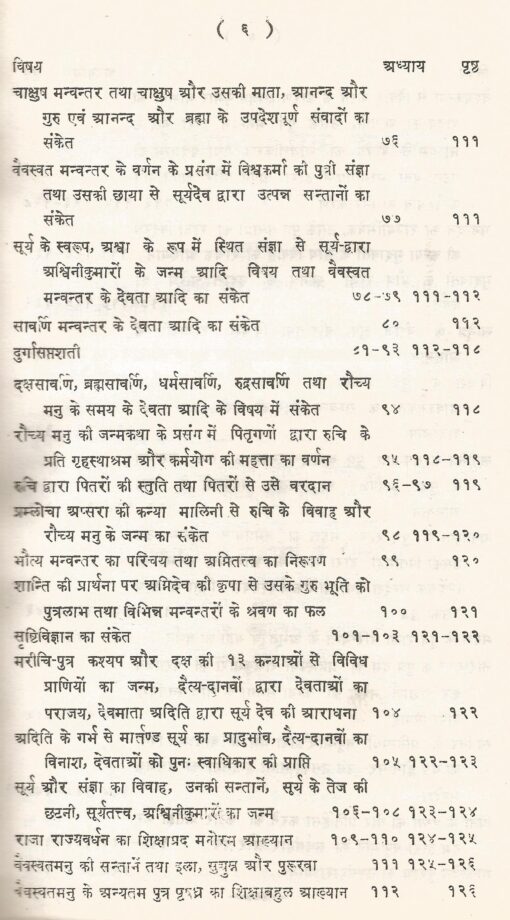 ( ६ )
विषय अध्याय पृष्ठ
चाक्षुष मन्वन्तर तथा चाक्षुष और उसकी माता, आनन्द और
गुरु एवं आनन्द और ब्रह्मा के उपदेशपूर्ण संवादों का
संकेत ७६ १११
वैवस्वत मन्वन्तर के वर्णन के प्रसंग में विश्वकर्मा की पुत्री संज्ञा
तथा उसकी छाया से सूर्यदेव द्वारा उत्पन्न सन्तानों का
संकेत ७७ १११
सूर्य के स्वरूप, अश्वा के रूप में स्थित संज्ञा से सूर्य-द्वारा
अश्विनीकुमारों के जन्म आदि विषय तथा वैवस्वत
मन्वन्तर के देवता आदि का संकेत ७८-७९ १११-११२
सावर्णि मन्वन्तर के देवता आदि का संकेत ८० ११२
दुर्गासप्तशती ८१-९३ ११२-११८
दक्षसावर्णि, ब्रह्मसावर्णि, धर्मसावर्णि, रुद्रसावर्णि तथा रौच्य
मनु के समय के देवता आदि के विषय में संकेत ९४ ११८
रौच्य मनु की जन्मकथा के प्रसंग में पितृगणों द्वारा रुचि के
प्रति गृहस्थाश्रम और कर्मयोग की महत्ता का वर्णन ९५ ११८-११९
रुचि द्वारा पितरों की स्तुति तथा पितरों से उसे वरदान ९६-९७ ११९
प्रम्लोचा अप्सरा की कन्या मालिनी से रुचि के विवाह और
रौच्य मनु के जन्म का संकेत ९८ ११९-१२०
भौत्य मन्वन्तर का परिचय तथा अग्नितत्त्व का निरूपण ९९ १२०
शान्ति की प्रार्थना पर अग्निदेव की कृपा से उसके गुरु भूति को
पुत्रलाभ तथा विभिन्न मन्वन्तरों के श्रवण का फल १०० १२१
सृष्टिविज्ञान का संकेत १०१-१०३ १२१-१२२
मरीचि-पुत्र कश्यप और दक्ष की १३ कन्याओं से विविध
प्राणियों का जन्म, दैत्य-दानवों द्वारा देवताओं का
पराजय, देवमाता अदिति द्वारा सूर्य देव की आराधना १०४ १२२
अदिति के गर्भ से मार्तण्ड सूर्य का प्रादुर्भाव, दैत्य-दानवों का
विनाश, देवताओं को पुनः स्वाधिकार की प्राप्ति १०५ १२२-१२३
सूर्य और संज्ञा का विवाह, उनकी सन्तानें, सूर्य के तेज की
छटनी, सूर्यतत्त्व, अश्विनीकुमारों का जन्म १०६-१०८ १२३-१२४
राजा राज्यवर्धन का शिक्षाप्रद मनोरम आख्यान १०९-११० १२४-१२५
वैवस्वतमनु की सन्तानें तथा इला, सुद्युम्न और पुरूरवा १११ १२५-१२६
वैवस्वतमनु के अन्यतम पुत्र पृषध्र का शिक्षाबहुल आख्यान ११२ १२६